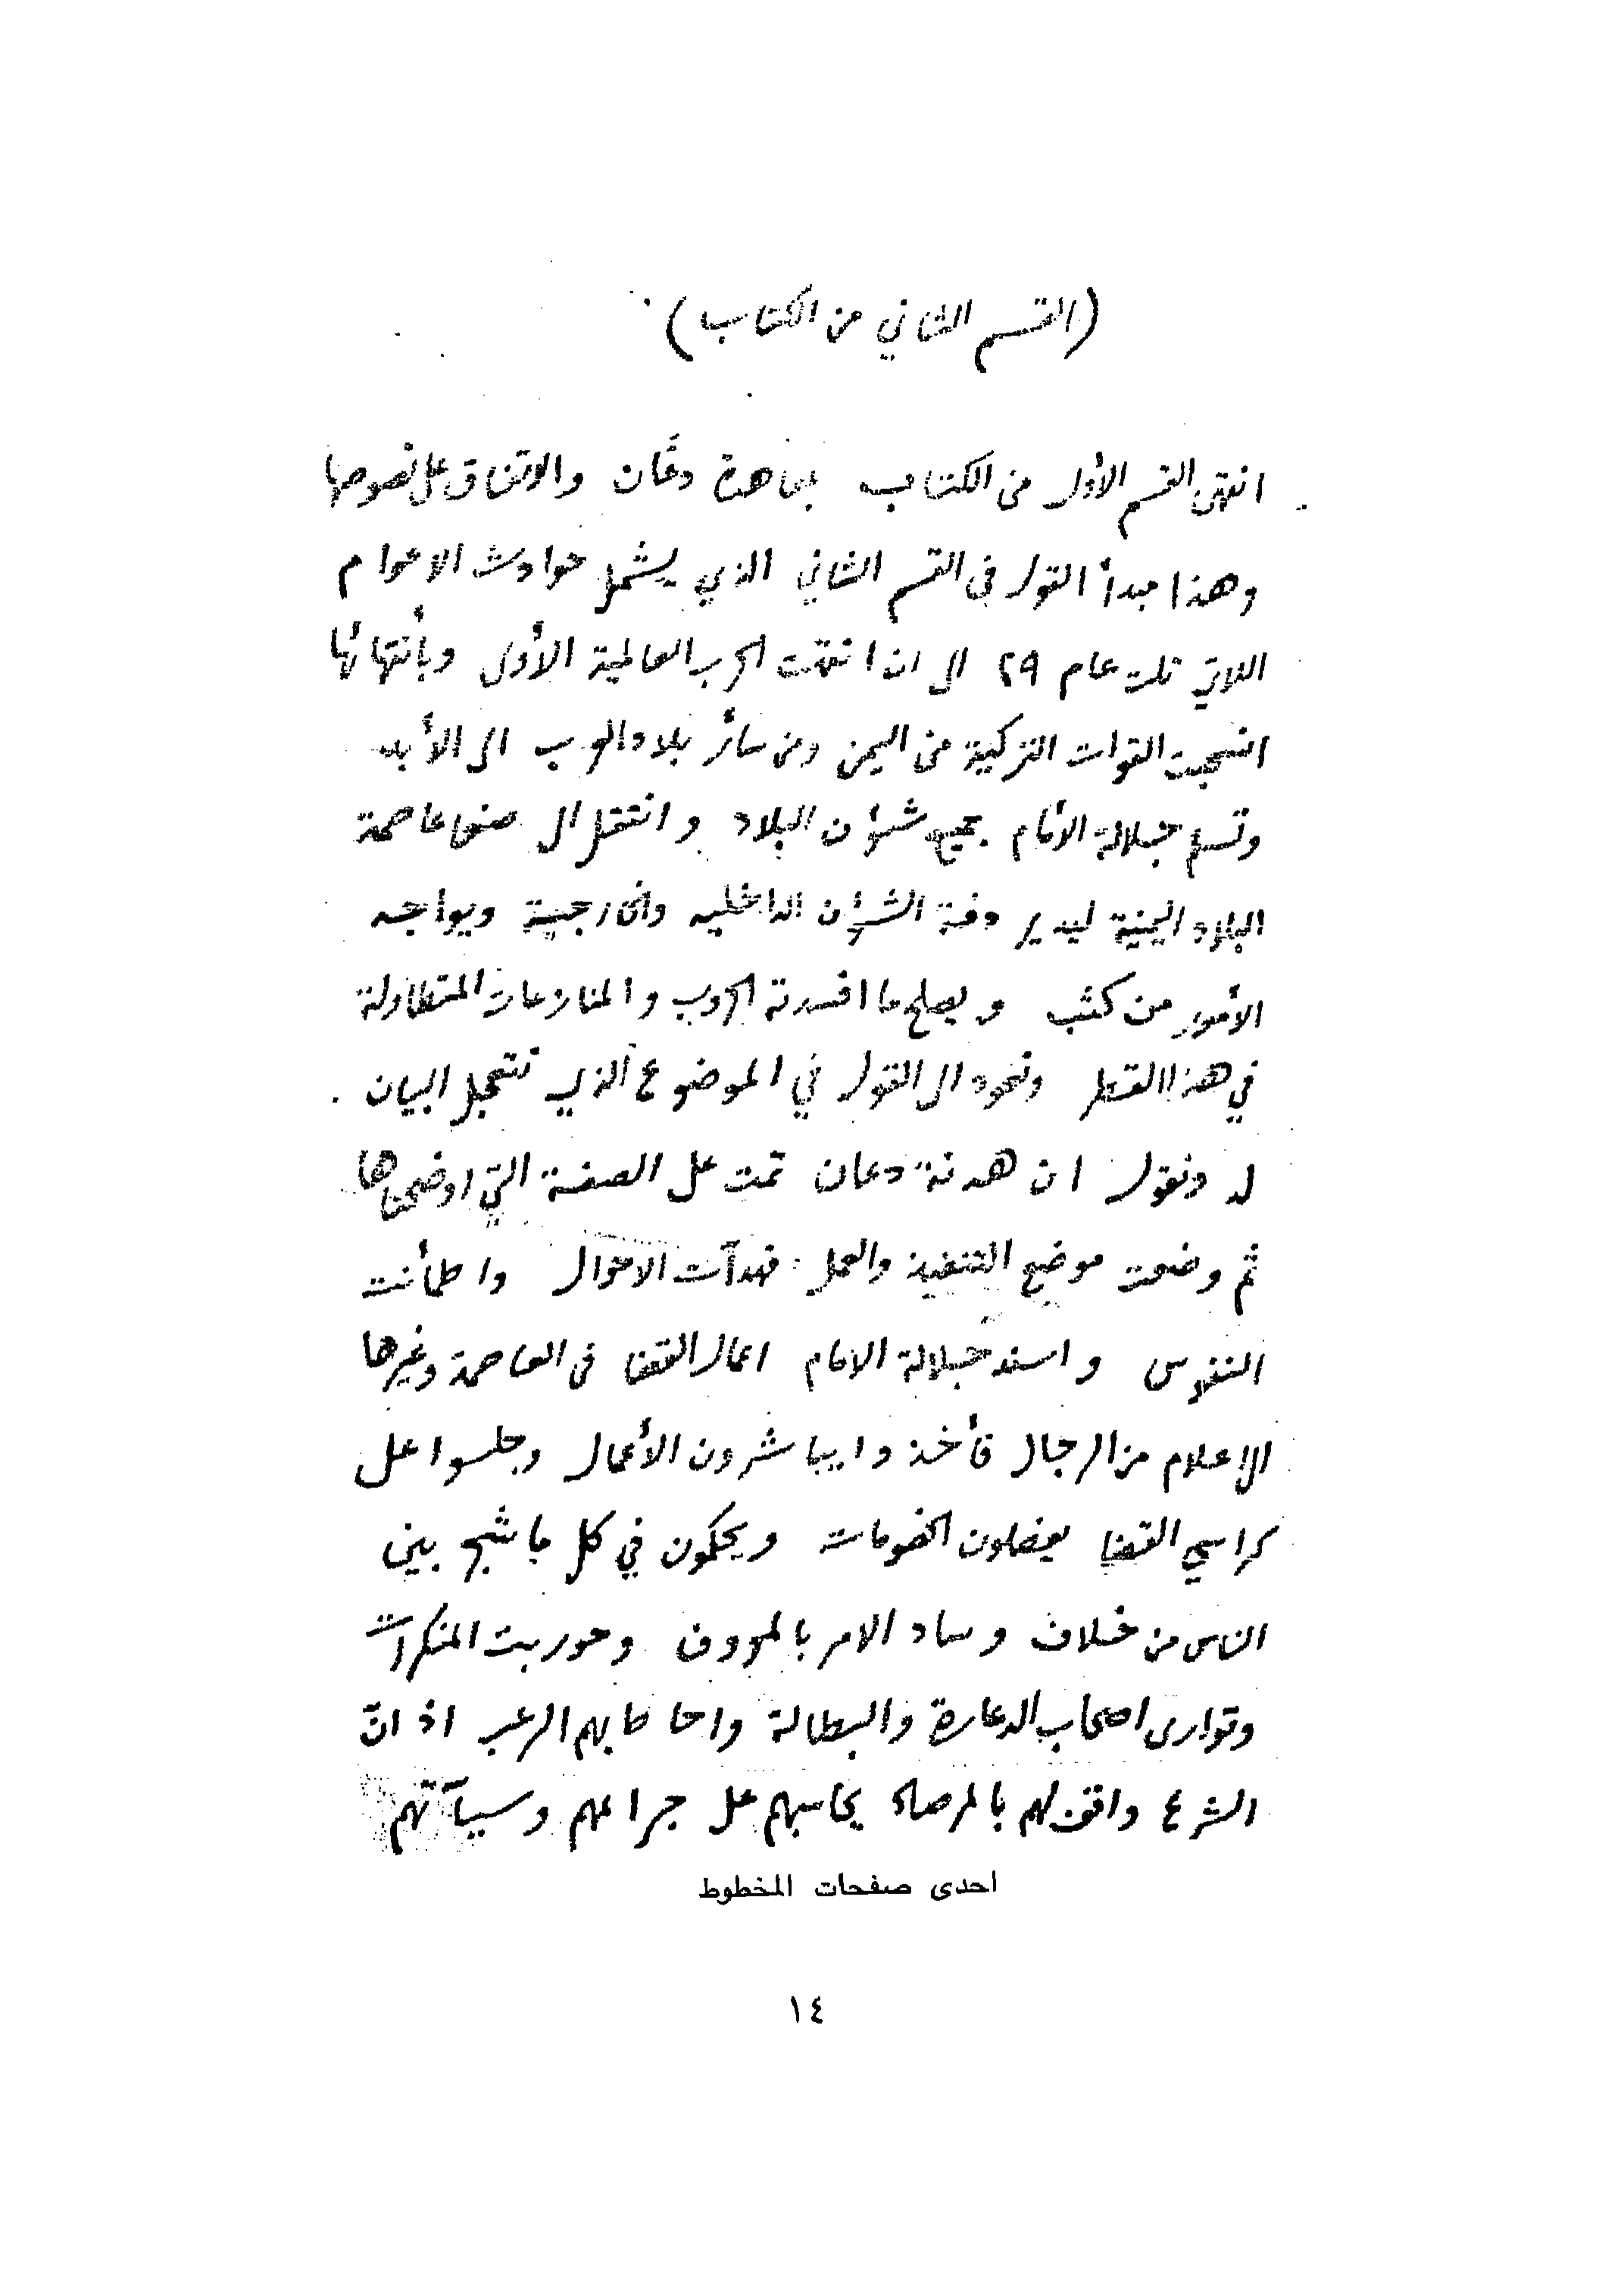 (القسم الثاني من الكتاب)
انتهى القسم الأول من الكتاب بمعاهدة دعّان والاتفاق على نصوصها
وهذا مبدأ القول في القسم الثاني الذي يشمل حوادث الاعوام
اللاتي تلت عام ٢٩ الى ان انتهت الحرب العالمية الأولى وبأنتهائها
انسحبت القوات التركية من اليمن ومن سائر بلاد العرب الى الأبد
وتسلم جلالة الأمام جميع شؤن البلاد وانتقل الى صنعا عاصمة
البلاد اليمنية ليدير دفة الشؤن الداخليه والخارجية ويواجه
الأمور من كثب ويصلح ما افسدته الحروب والمنازعات المتطاولة
في هذا القطر ونعود الى القول في الموضوع الذي نتعجل البيان
له ونقول ان هدنة دعان تمت على الصفة التي اوضحناها
ثم وضعت موضع التنفيذ والعمل فهدأت الاحوال واطمأنت
النفوس واسند جلالة الامام اعمال القضا في العاصمة وغيرها
الى اعلام من الرجال فأخذوا يباشرون الأعمال وجلسوا على
كراسي القضا يفصلون الخصومات ويحكمون في كل ما شجر بين
الناس من خلاف وساد الامر بالمعروف وحوربت المنكرات
وتوارى اصحاب الدعارة والبطالة واحاط بهم الرعب اذ انّ
الشرع واقف لهم بالمرصاد يحاسبهم على جرائمهم وسيآتهم
احدى صفحات المخطوط
١٤